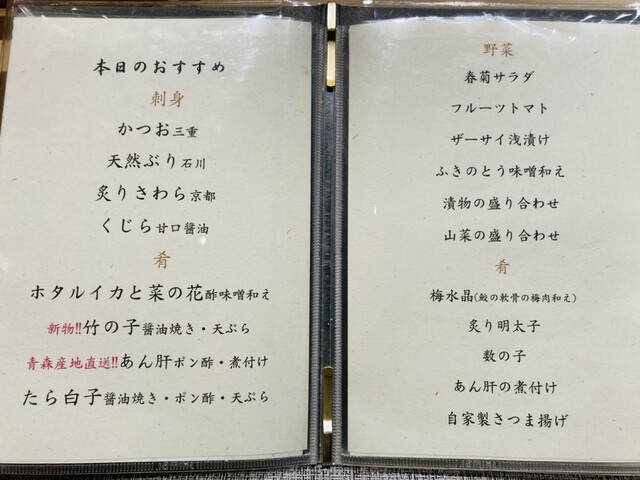 本日のおすすめ
刺身
かつお三重
天然ぶり石川
炙りさわら京都
くじら甘口醤油
肴
ホタルイカと菜の花酢味噌和え
新物!!竹の子醤油焼き・天ぷら
青森産地直送!!あん肝ポン酢・煮付け
たら白子醤油焼き・ポン酢・天ぷら
野菜
春菊サラダ
フルーツトマト
ザーサイ浅漬け
ふきのとう味噌和え
漬物の盛り合わせ
山菜の盛り合わせ
肴
梅水晶(鮫の軟骨の梅肉和え)
炙り明太子
数の子
あん肝の煮付け
自家製さつま揚げ